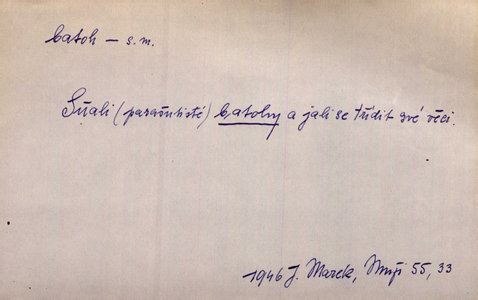 batoh – s.m.
Sňali (parašutisté) batohy a jali se třídit své věci.
1946 J. Marek, 55, 33